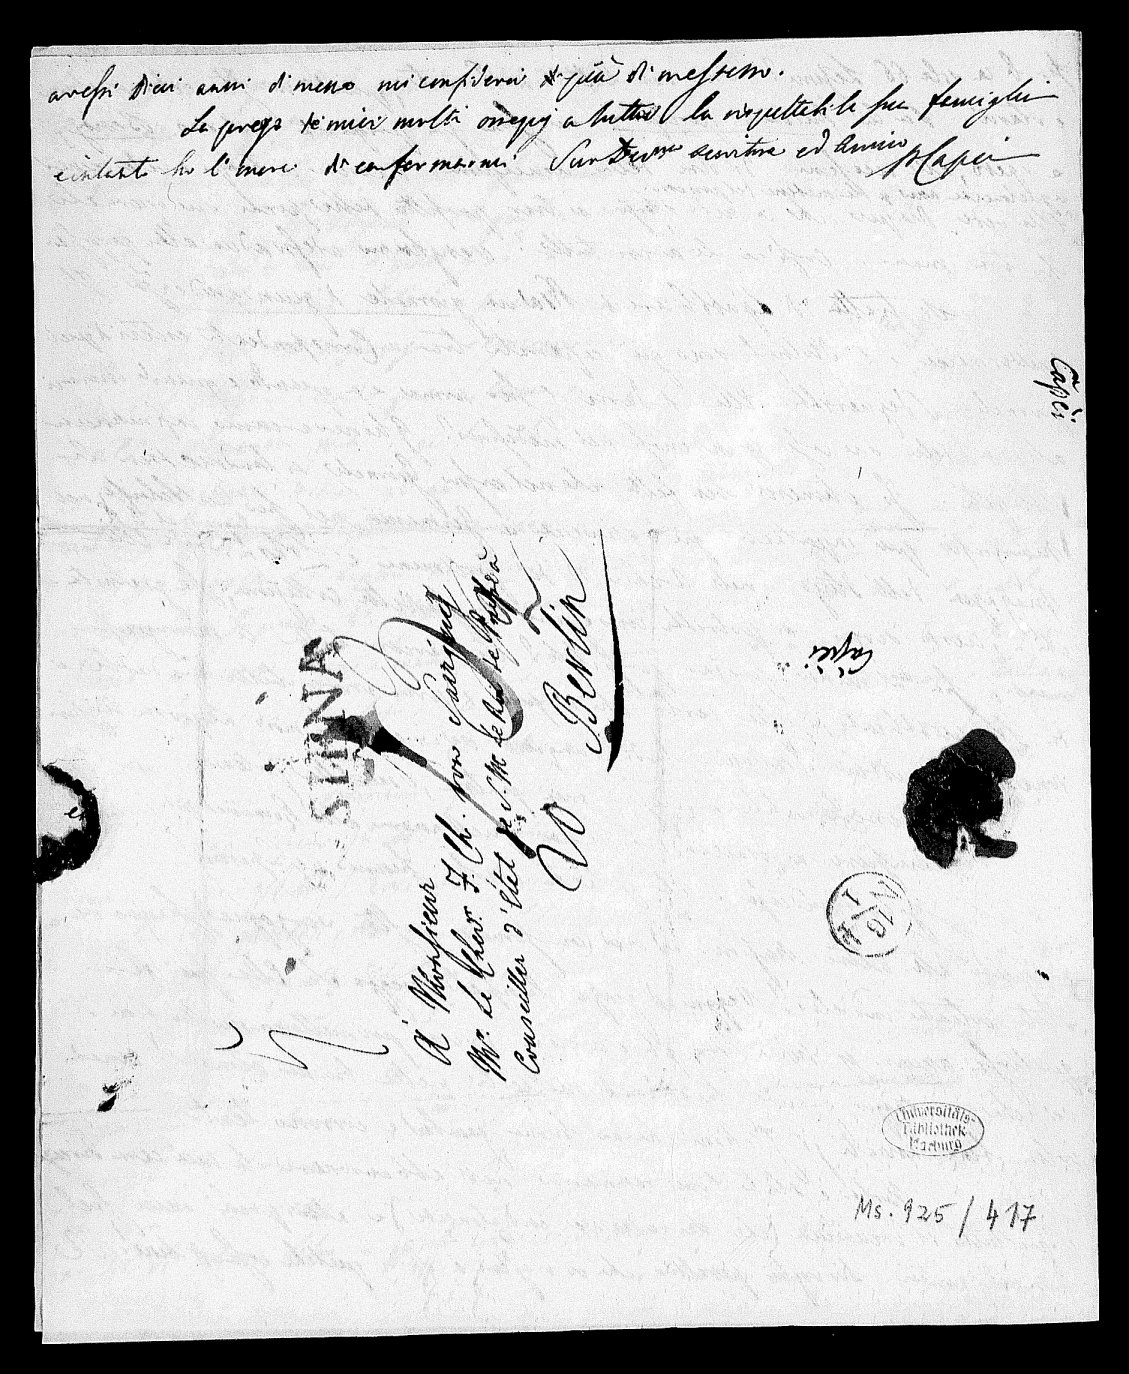 avessi dieci anni di meno mi considererei di già di messesso.
La prego de miei molti ossequj a tutta la rispettabile sua famiglia
e intanto ho l'onore di confermarmi Suo Devmo servitore ed Amico
P Capei
Capei
Capei
SIENA
A Monsieur
Mr. Le Chevr. F. Ch. von Savigny
Conseiller d'Etat de S. M. le Roi de Prusse à
Berlin
N 10 1
Universitäts-
Bibliothek
Marburg
Ms. 925/417